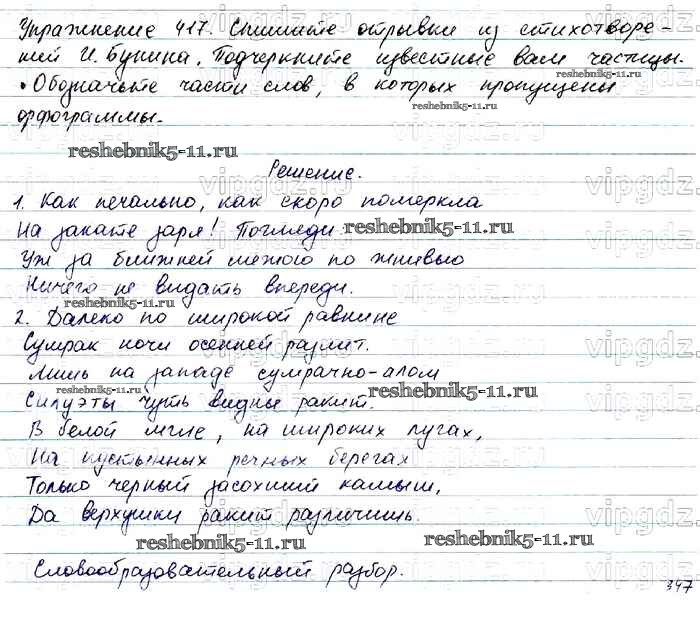 Упражнение 417. Спишите отрывки из стихотворе-
ний И. Бунина. Подчеркните известные вам частицы.
• Обозначьте части слов, в которых пропущены
орфограммы.
reshebnik5-11.ru
reshebnik5-11.ru
reshebnik5-11.ru
Решение.
1. Как печально, как скоро померкла
На закате заря! Погляди
reshebnik5-11.ru
Уж за ближней межою по жнивью
Ничего не видать впереди.
reshebnik5-11.ru
2. Далеко по широкой равнине
Сумрак ночи осенней разлит.
Лишь на западе сумрачно-алом
reshebnik5-11.ru
Силуэты чуть видны ракит.
В белой мгле, на широких лугах,
На пустынных речных берегах
Только черный засохший камыш,
Да верхушки ракит различишь.
reshebnik5-11.ru
reshebnik5-11.ru
Словообразовательный разбор.
347
vipgdz.ru
vipgdz.ru
vipgdz.ru